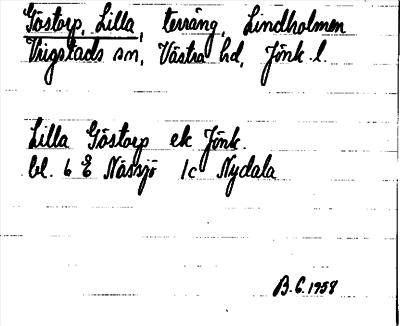 Göstorp, Lilla, terräng, Lindholmen
Vrigstads sn, Västra hd, Jönk. l.
Lilla Göstorp ek Jönk.
bl. 6 E Nässjö 1c Nydala
B.G. 1958